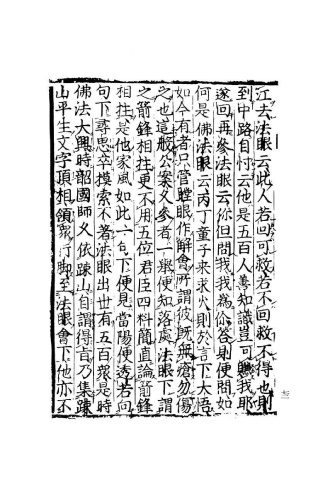 江去法眼云此人若回可救若不回救不得也則
到中路自忖云他是五百人善知識豈可賺我耶
遂回再參法眼云你但問我我為你答則便問如
何是佛法眼云丙丁童子来求火則於言下大悟
如今有者只管瞠眼作解會所謂彼既無瘡勿傷
之也這般公案久參者一舉便知落處法眼下謂
之箭鋒相拄更不用五位君臣四料簡直論箭鋒
相拄是他家風如此一句下便見當陽便透若向
句下尋思卒摸索不著法眼出世有五百衆是時
佛法大興時韶國師久依疎山自謂得旨乃集疎
山平生文字頂相領衆行脚至法眼會下他亦不